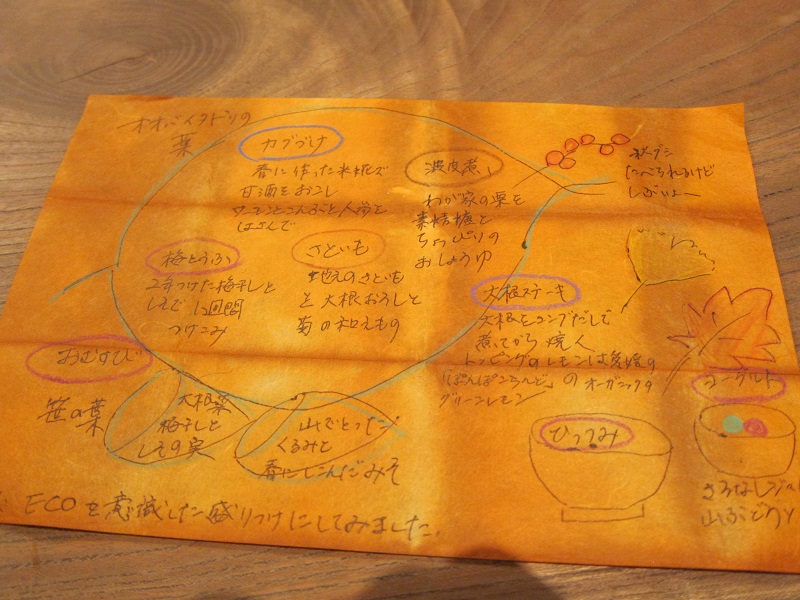 オオバイタドリの
葉
カブづけ
春に作った米糀で
甘酒をおこし
ワーテンとこんぶと人参を
はさんで
渋皮煮
わが家の栗を
素精糖と
ちょっぴりの
おしょうゆ
秋グミ
たべられるけど
しぶいよ〜
梅とうふ
2年つけた梅干しと
しそで1週間
つけこみ
さといも
地元のさといも
と大根おろしと
菊の和えもの
大根ステーキ
大根をコンブだしで
煮てから焼く
トッピングのレモンは愛媛の
のオーガニックの
グリーンレモン
おむすび
笹の葉
大根葉
梅干しと
しその実
山でとった
くるみと
春にしこんだみそ
ひっつみ
ヨーグルト
さるなしジャム
山ぶどう
ECOを意識した盛りつけにしてみました。